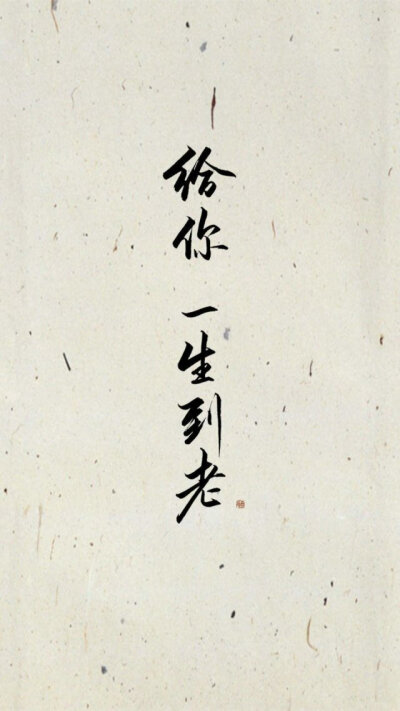 给你 一生到老